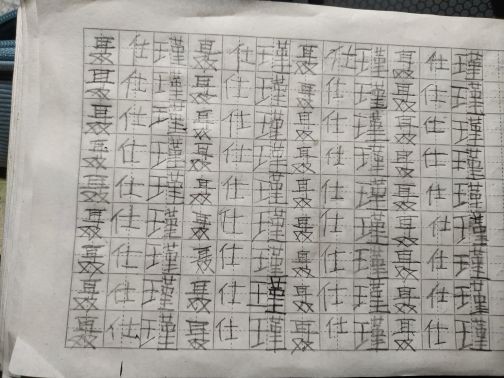 聂仕瑾聂仕瑾聂仕瑾聂仕瑾
聂仕瑾聂仕瑾聂仕瑾聂仕瑾
聂仕瑾聂仕瑾聂仕瑾聂仕瑾
聂仕瑾聂仕瑾聂仕瑾聂仕瑾
聂仕瑾聂仕瑾聂仕瑾聂仕瑾
聂仕瑾聂仕瑾聂仕瑾聂仕瑾
聂仕瑾聂仕瑾聂仕瑾聂仕瑾
聂仕瑾聂仕瑾聂仕瑾聂仕瑾
聂仕瑾聂仕瑾聂仕瑾聂仕瑾